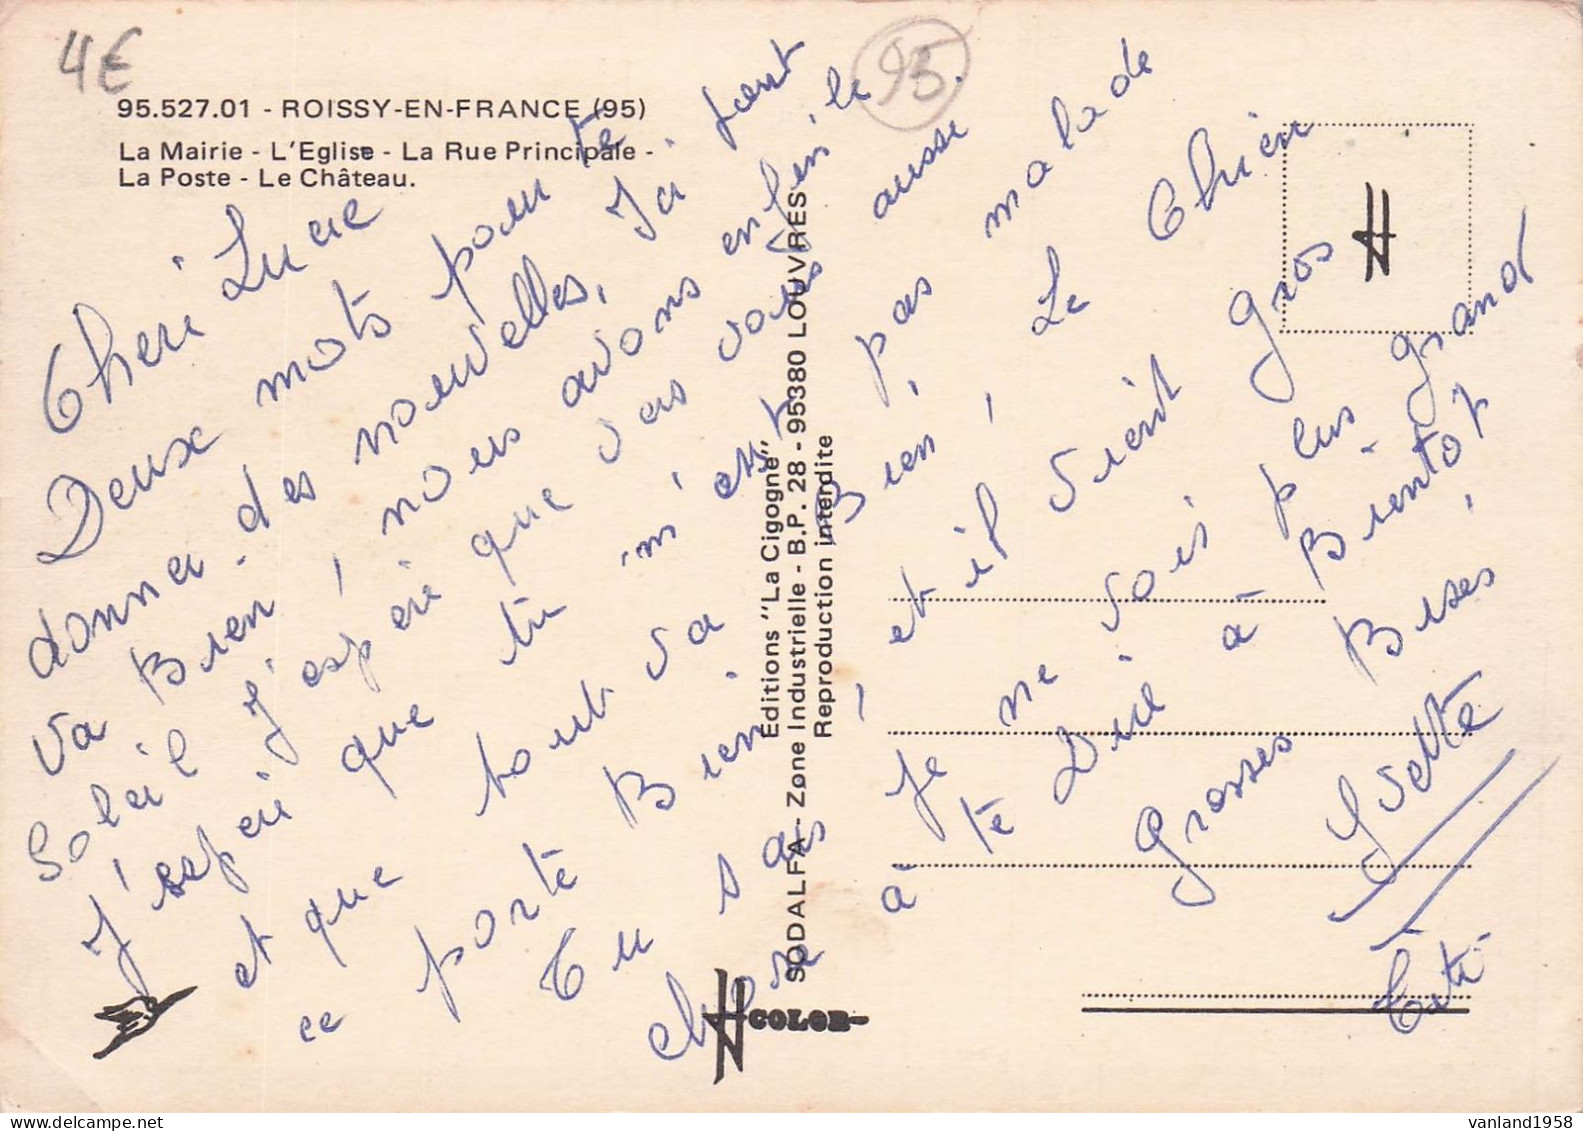 4€
95
95.527.01 - ROISSY-EN-FRANCE (95)
La Mairie - L'Eglise - La Rue Principale -
La Poste - Le Château.
Cheri Lucie
Deux mots pour te
donner des nouvelles. Ici tout
va Bien, nous avons enfin le
Soleil J'esperé que vas vous aussi.
J'esperé que tu m'est pas malade
et que tout va Bien, Le Chien
ce porte Bien, et il vient gros
Tu sais Je ne vois plus grand
chose à te Dire à Bientot
Grosses Bises,
Yvette
Titi
Editions "La Cigogne"
SODALFA - Zone Industrielle - B.P. 28 - 95380 LOUVRES
Reproduction interdite
H COLOR
H
vanland1958